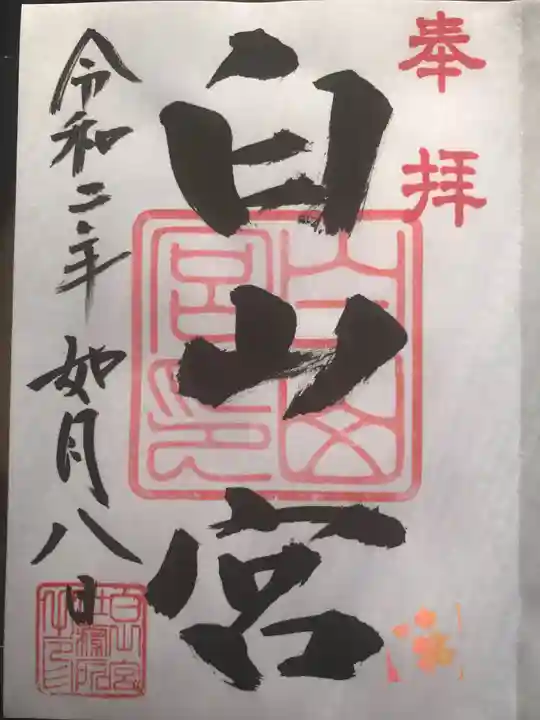 奉拝
白山宮
令和二年如月八日